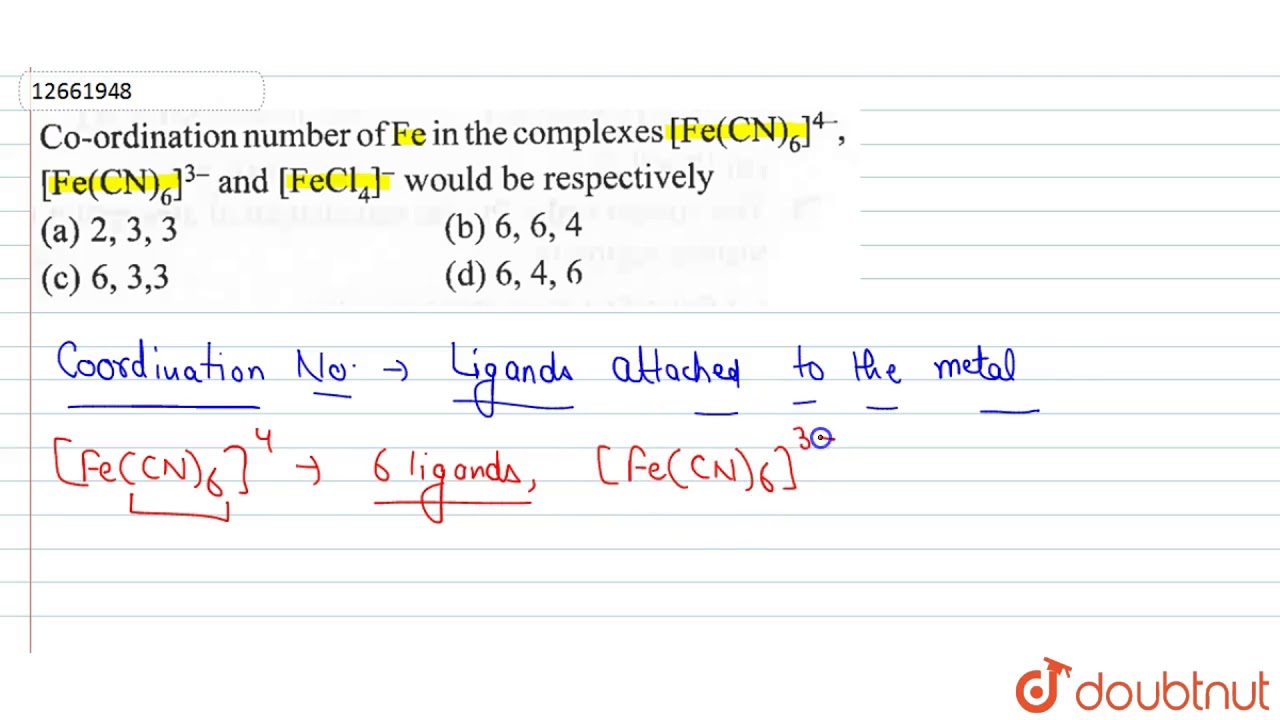 12661948
Co-ordination number of Fe in the complexes [Fe(CN)₆]⁴⁻,
[Fe(CN)₆]³⁻ and [FeCl₄]⁻ would be respectively
(a) 2, 3, 3 (b) 6, 6, 4
(c) 6, 3,3 (d) 6, 4, 6
Coordination No. → Ligands attached to the metal
[Fe(CN)₆]⁴ → 6 ligands, [Fe(CN)₆]³⁻
doubtnut